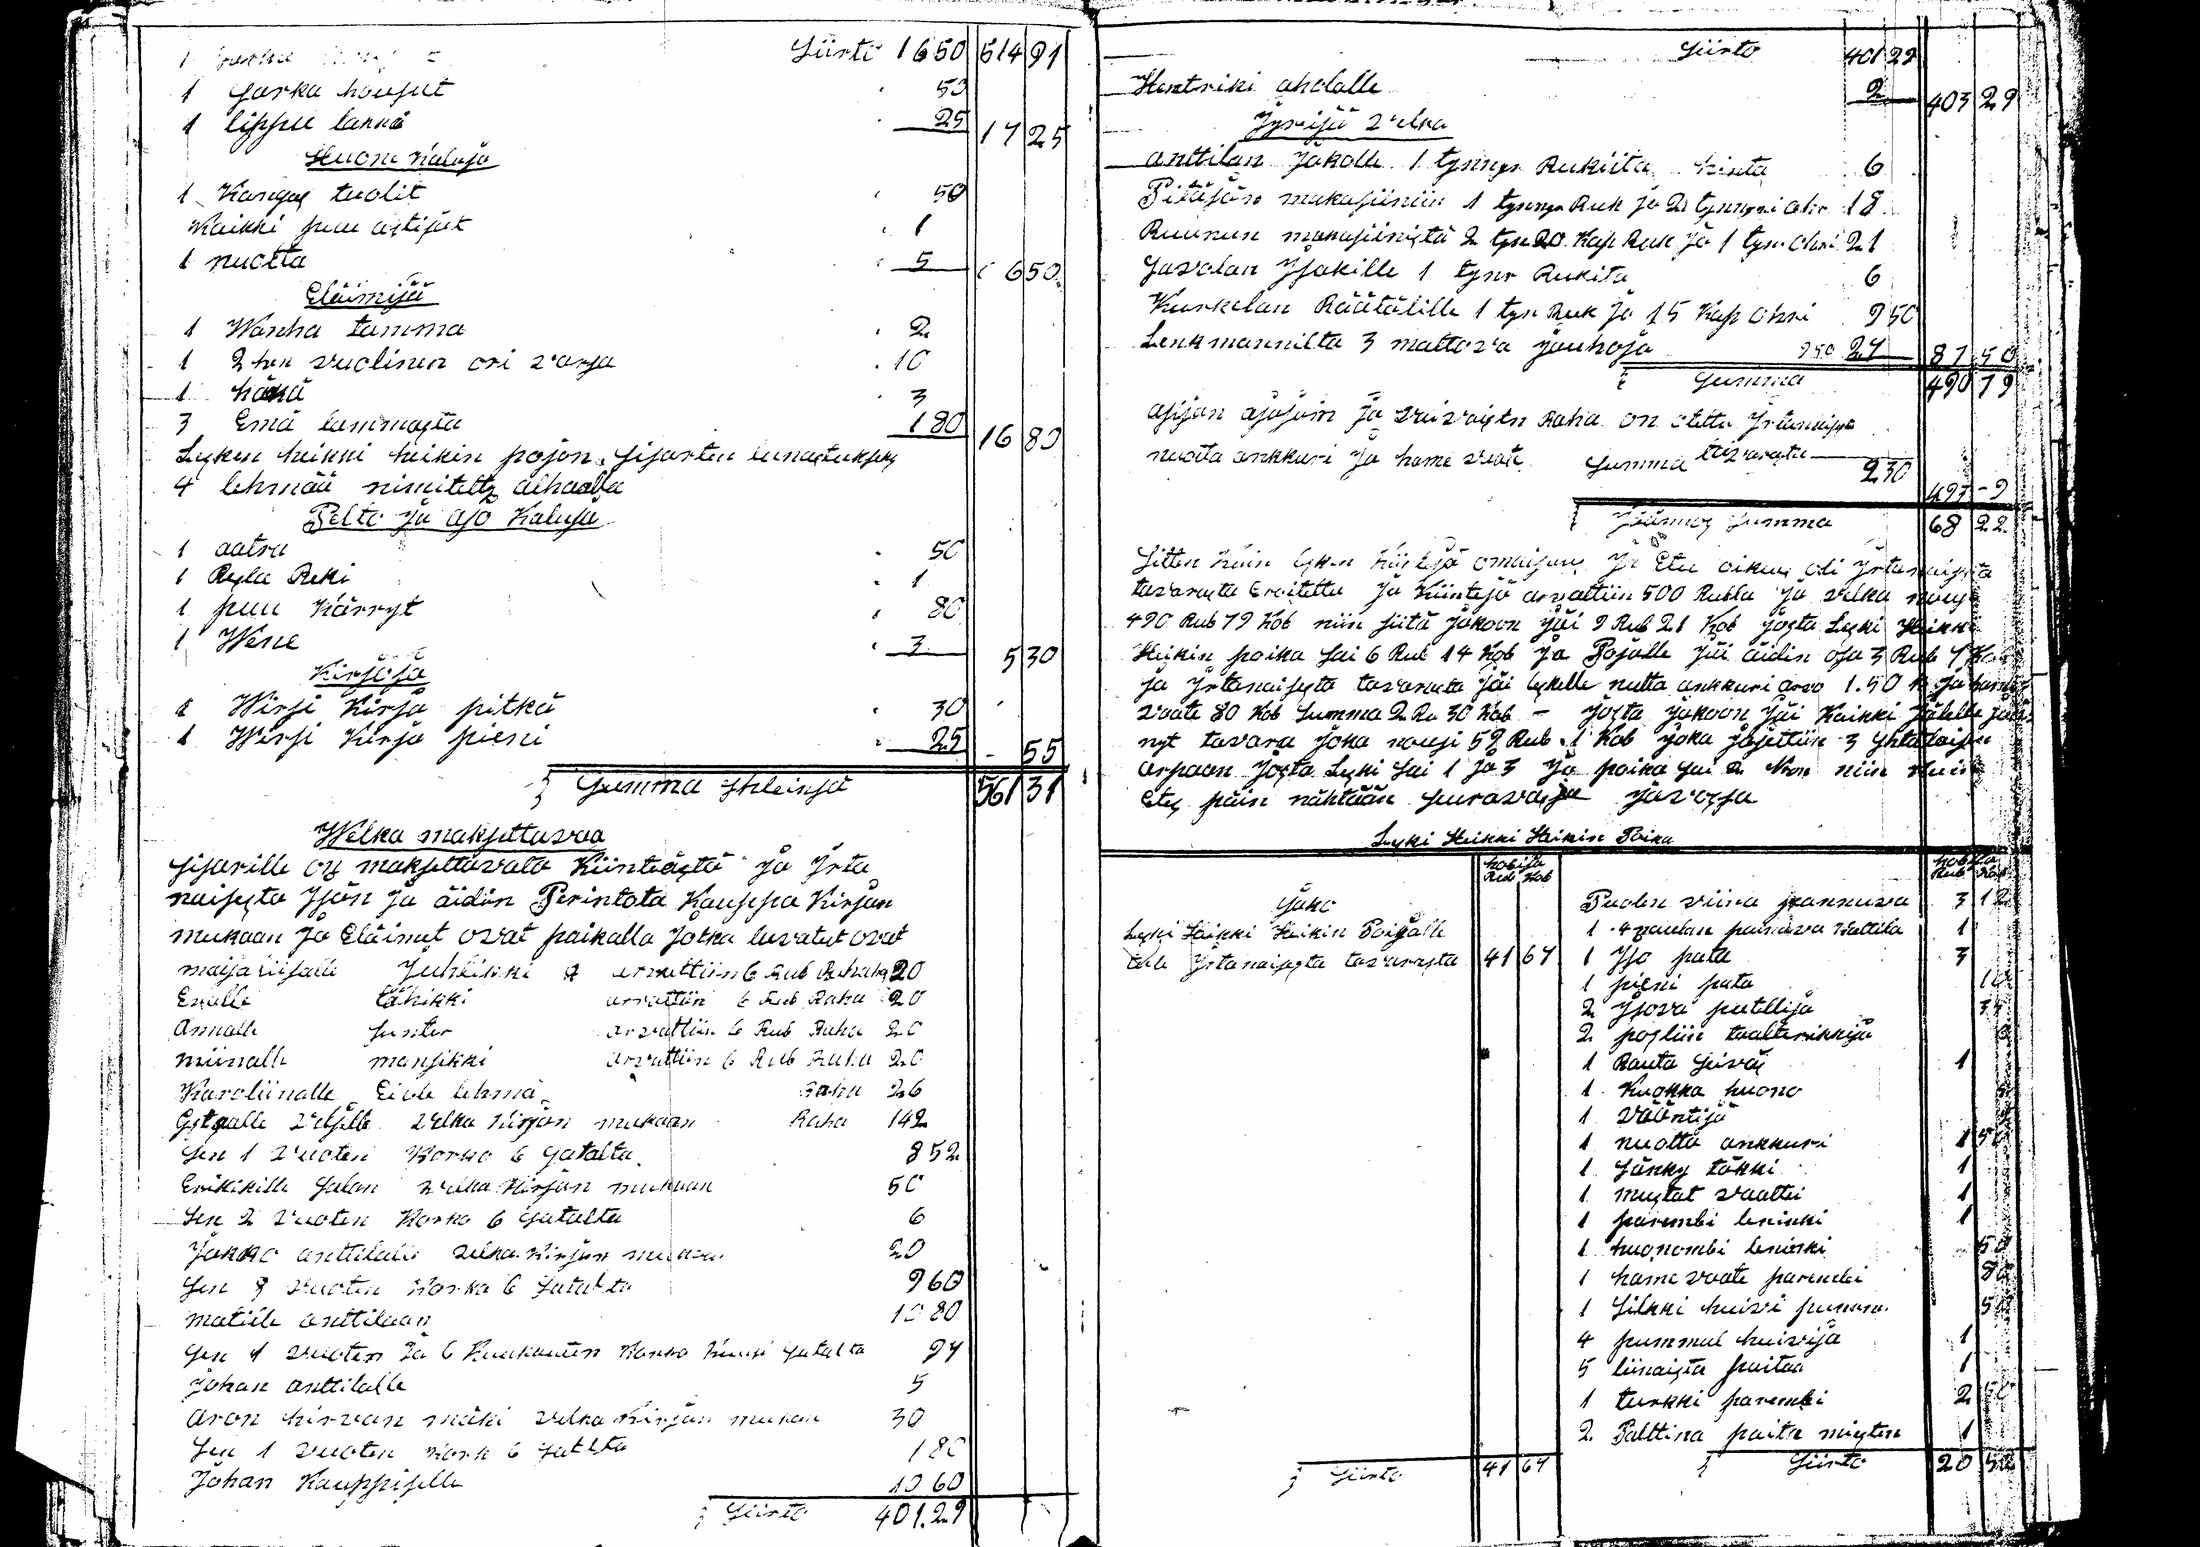 Siirto 1650 514 91
1 Sarka housut 50
1 lippu lakki 25 17 25
Huone kaluja
1 Kangas tuolit 50
Kaikki puu astijat 1
1 nuotta 5 6 50
Eläimijä
1 Wanha tamma 2
1 2hen vuolinen ori varsa 10
1 3
3 Emä lammasta 180 16 80
Lesken heikki heikin pojan Sisarten lunastukses
4 lehmää nimitetty alhaalla
Pelto ja ajo Kaluja
1 aatra 50
1 Resla Reki 1
1 puu Kärryt 80
1 Wene 3 5 30
Kirjoja
1 Wirsi Kirja pitkä 30
1 Wirsi Kirja pieni 25 - 55
Summa Yhteinsä 561 31
Welka maksettavaa
Sisarille on maksettavata Kiinteästä ja Yrta
naisesta Isän ja äidin Perintötä Kauppa Kirjan
mukaan ja Eläimet ovat paikalla jotka luvatut ovat
maija liisalle Juhlikki arvattiin 6 Rub Rahaa 20
Evalle tähikki arvattiin 6 Rub Raha 20
Annalle Sunter arvattiin 6 Rub Raha 20
miinalle mansikki arvattiin 6 Rub Raha 20
Karoliinalle Ei ole lehmä Raha 26
veljelle velka Kirjan mukaan Raha 142
Sen 1 vuoten Korko 6 Satalta 852
Erikikille Salan velka Kirjan mukaan 50
Sen 2 vuoten Korko 6 Satalta 6
Jakko anttilalle velka Kirjan mukaan 20
Sen 8 vuoten Korko 6 Satalta 960
matille anttilaan 10 80
Sen 1 vuoten ja 6 Kuukauten Korko Kuusi Satalta 97
Johan anttilalle 5
Aron hirvan mäki velka Kirjan mukan 30
Sen 1 vuoten Kork 6 Satalta 180
Johan Kauppiselle 10 60
Siirto 401.29
Siirto 401 29
Hentriki aholalle 2 403 29
Jyvijä velka
anttilan Jakolle 1 tynnyr Rukiita hinta 6
Pitäjän makasiiniin 1 tynnyr Ruk ja 2 tynnyri ohr 18
Ruunun makasiinista 2 tyn 20 Kap Ruk ja 1 tyn ohri 21
Savolan Isakille 1 tynr Rukita 6
Kurkelan Räätälille 1 tyn Ruk ja 15 Kap ohri 9 50
Lenkmannilta 3 mattova jauhoja 950 27 87 50
Summa 490 79
asijan ajajain ja vaivaisten Raha on otettu Yrtamista
nuota ankkuri ja hame vaate Summa tavarasta 2 30
493 - 9
Jäännös Summa 68 22
Sitten Kuin lesken Kiinteä omaisuus ja Etu oikeus oli Yrtanaisesta
tavarasta Eroitettu ja Kiinteä arvattiin 500 Rubla ja velka nousi
490 Rub 79 Kob niin siitä jakoon jäi 9 Rub 21 Kob josta Leski Heikki
Heikin poika sai 6 Rub 14 Kob ja Pojalle jäi äidin osa 3 Rub 7 Kob
ja Yrtanaisesta tavarasta jäi leskelle nutta ankkuri arvo 1.50 K ja hame
vaate 80 Kob Summa 2 Ru 30 Kob - josta jakoon jäi Kaikki jälelle jää
nyt tavara joka nousi 59 Rub 1 Kob joka jajettiin 3 yhtäläisen
arpaan josta Leski sai 1 ja 3 ja poika sai 2 Nron niin Kuin
Etes päin nähtään Seuravassa jaossa
Leski Heikki Heikin Poika
Hobista
Rub Kob
Jako
Leski Heikki Heikin Poijalle
tule Yrtanaisesta tavarasta 41 67
Siirto 41 67
Hobista
Rub Kob
Puolen viina pannuva 3 12
1 4 naulan painava Kattila 1
1 Iso pata 3
1 pieni pata 10
2 Isova putellija
2 posliin taalterikkija
1 Rauta Seiväs 1
1 Kuokka huono
1 vääntijä
1 nuotta ankkuri 1 50
1 Sänky täkki 1
1 mustat vaattei 1
1 parembi leninki 1
1 huonombi leninki 50
1 hame vaate parembi 80
1 Silkki huivi punane 50
4 pummul huivija 1
5 liinaista paitaa 1
1 turkki parembi 2 50
2 Palttina paita miesten 1
Siirto 20 52